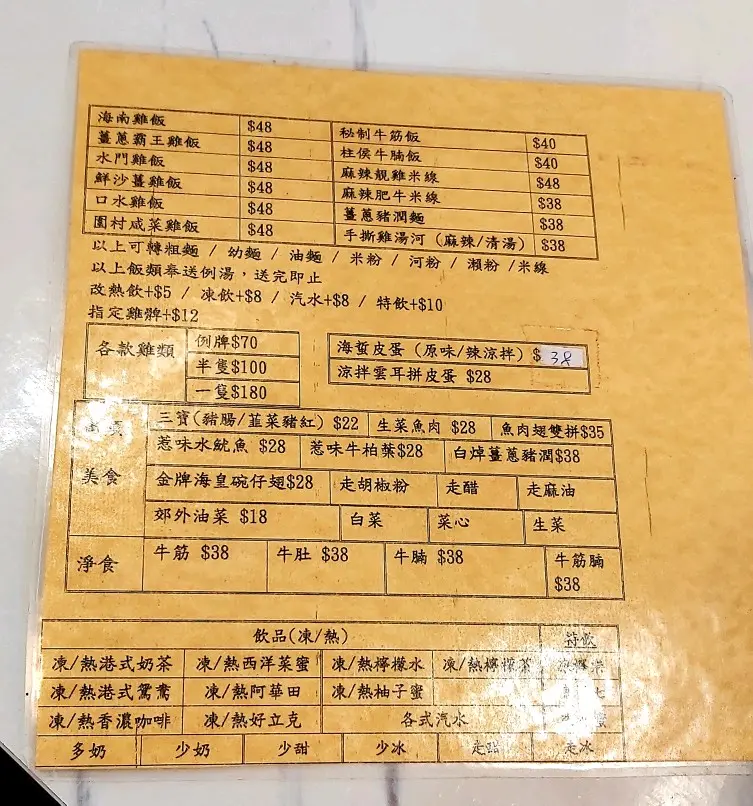 海南雞飯 $48 秘制牛筋飯 $40
薑蔥霸王雞飯 $48 柱侯牛腩飯 $40
水門雞飯 $48 麻辣靚雞米線 $48
鮮沙薑雞飯 $48 麻辣肥牛米線 $38
口水雞飯 $48 薑蔥豬潤麵 $38
圍村咸菜雞飯 $48 手撕雞湯河 (麻辣/清湯) $38
以上可轉粗麵 / 幼麵 / 油麵 / 米粉 / 河粉 / 瀨粉 /米線
以上飯類奉送例湯，送完即止
改熱飲+$5 / 凍飲+$8 / 汽水+$8 / 特飲+$10
指定雞髀+$12
各款雞類 例牌$70
半隻$100
一隻$180
海蜇皮蛋 (原味/辣涼拌) $ 38
涼拌雲耳拼皮蛋 $28
三寶(豬腸/韮菜豬紅) $22 生菜魚肉 $28 魚肉翅雙拼$35
美食
惹味水魷魚 $28 惹味牛柏葉$28 白焯薑蔥豬潤$38
金牌海皇碗仔翅$28 走胡椒粉 走醋 走麻油
郊外油菜 $18 白菜 菜心 生菜
淨食 牛筋 $38 牛肚 $38 牛腩 $38 牛筋腩 $38
飲品(凍/熱) 特飲
凍/熱港式奶茶 凍/熱西洋菜蜜 凍/熱檸檬水 凍/熱檸檬茶
凍/熱港式鴛鴦 凍/熱阿華田 凍/熱柚子蜜
凍/熱香濃咖啡 凍/熱好立克 各式汽水
多奶 少奶 少甜 少冰 走冰